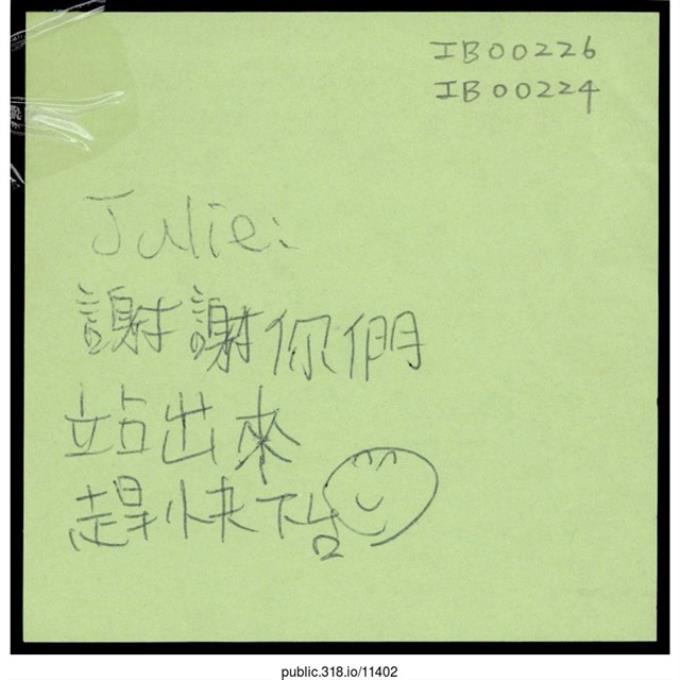 IB00226
IB00224
Julie:
謝謝你們
站出來
趕快下台
public.318.io/11402